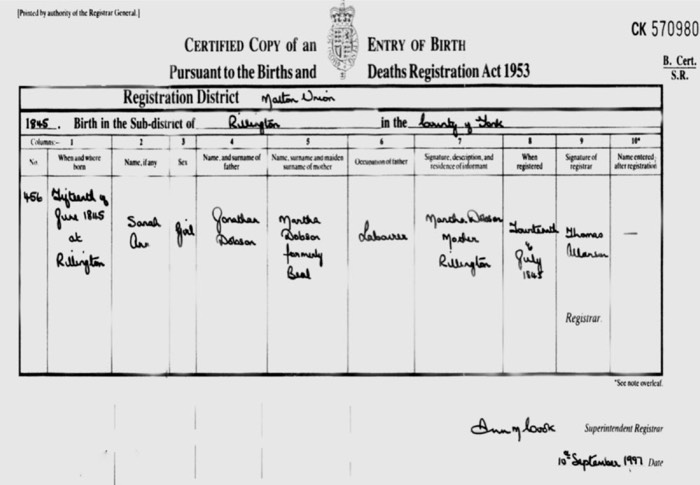 [Printed by authority of the Registrar General.]
CK 570980
CERTIFIED COPY of an ENTRY OF BIRTH
B. Cert.
S.R.
Pursuant to the Births and Deaths Registration Act 1953
Registration District Malton Union
1845. Birth in the Sub-district of Rillington in the County of York
Columns:- 1 2 3 4 5 6 7 8 9 10*
No. When and where born Name, if any Sex Name, and surname of father Name, surname and maiden surname of mother Occupation of father Signature, description, and residence of informant When registered Signature of registrar Name entered after registration
456
Fifteenth of
June 1845
at
Rillington
Sarah
Ann
Girl
Jonathan
Dobson
Martha
Dobson
formerly
Beal
Labourer
Martha Dobson
Mother
Rillington
Fourteenth
of
July
1845
Thomas
Allanson
Registrar.
—
*See note overleaf.
Ann M Cook Superintendent Registrar
10th September 1997 Date